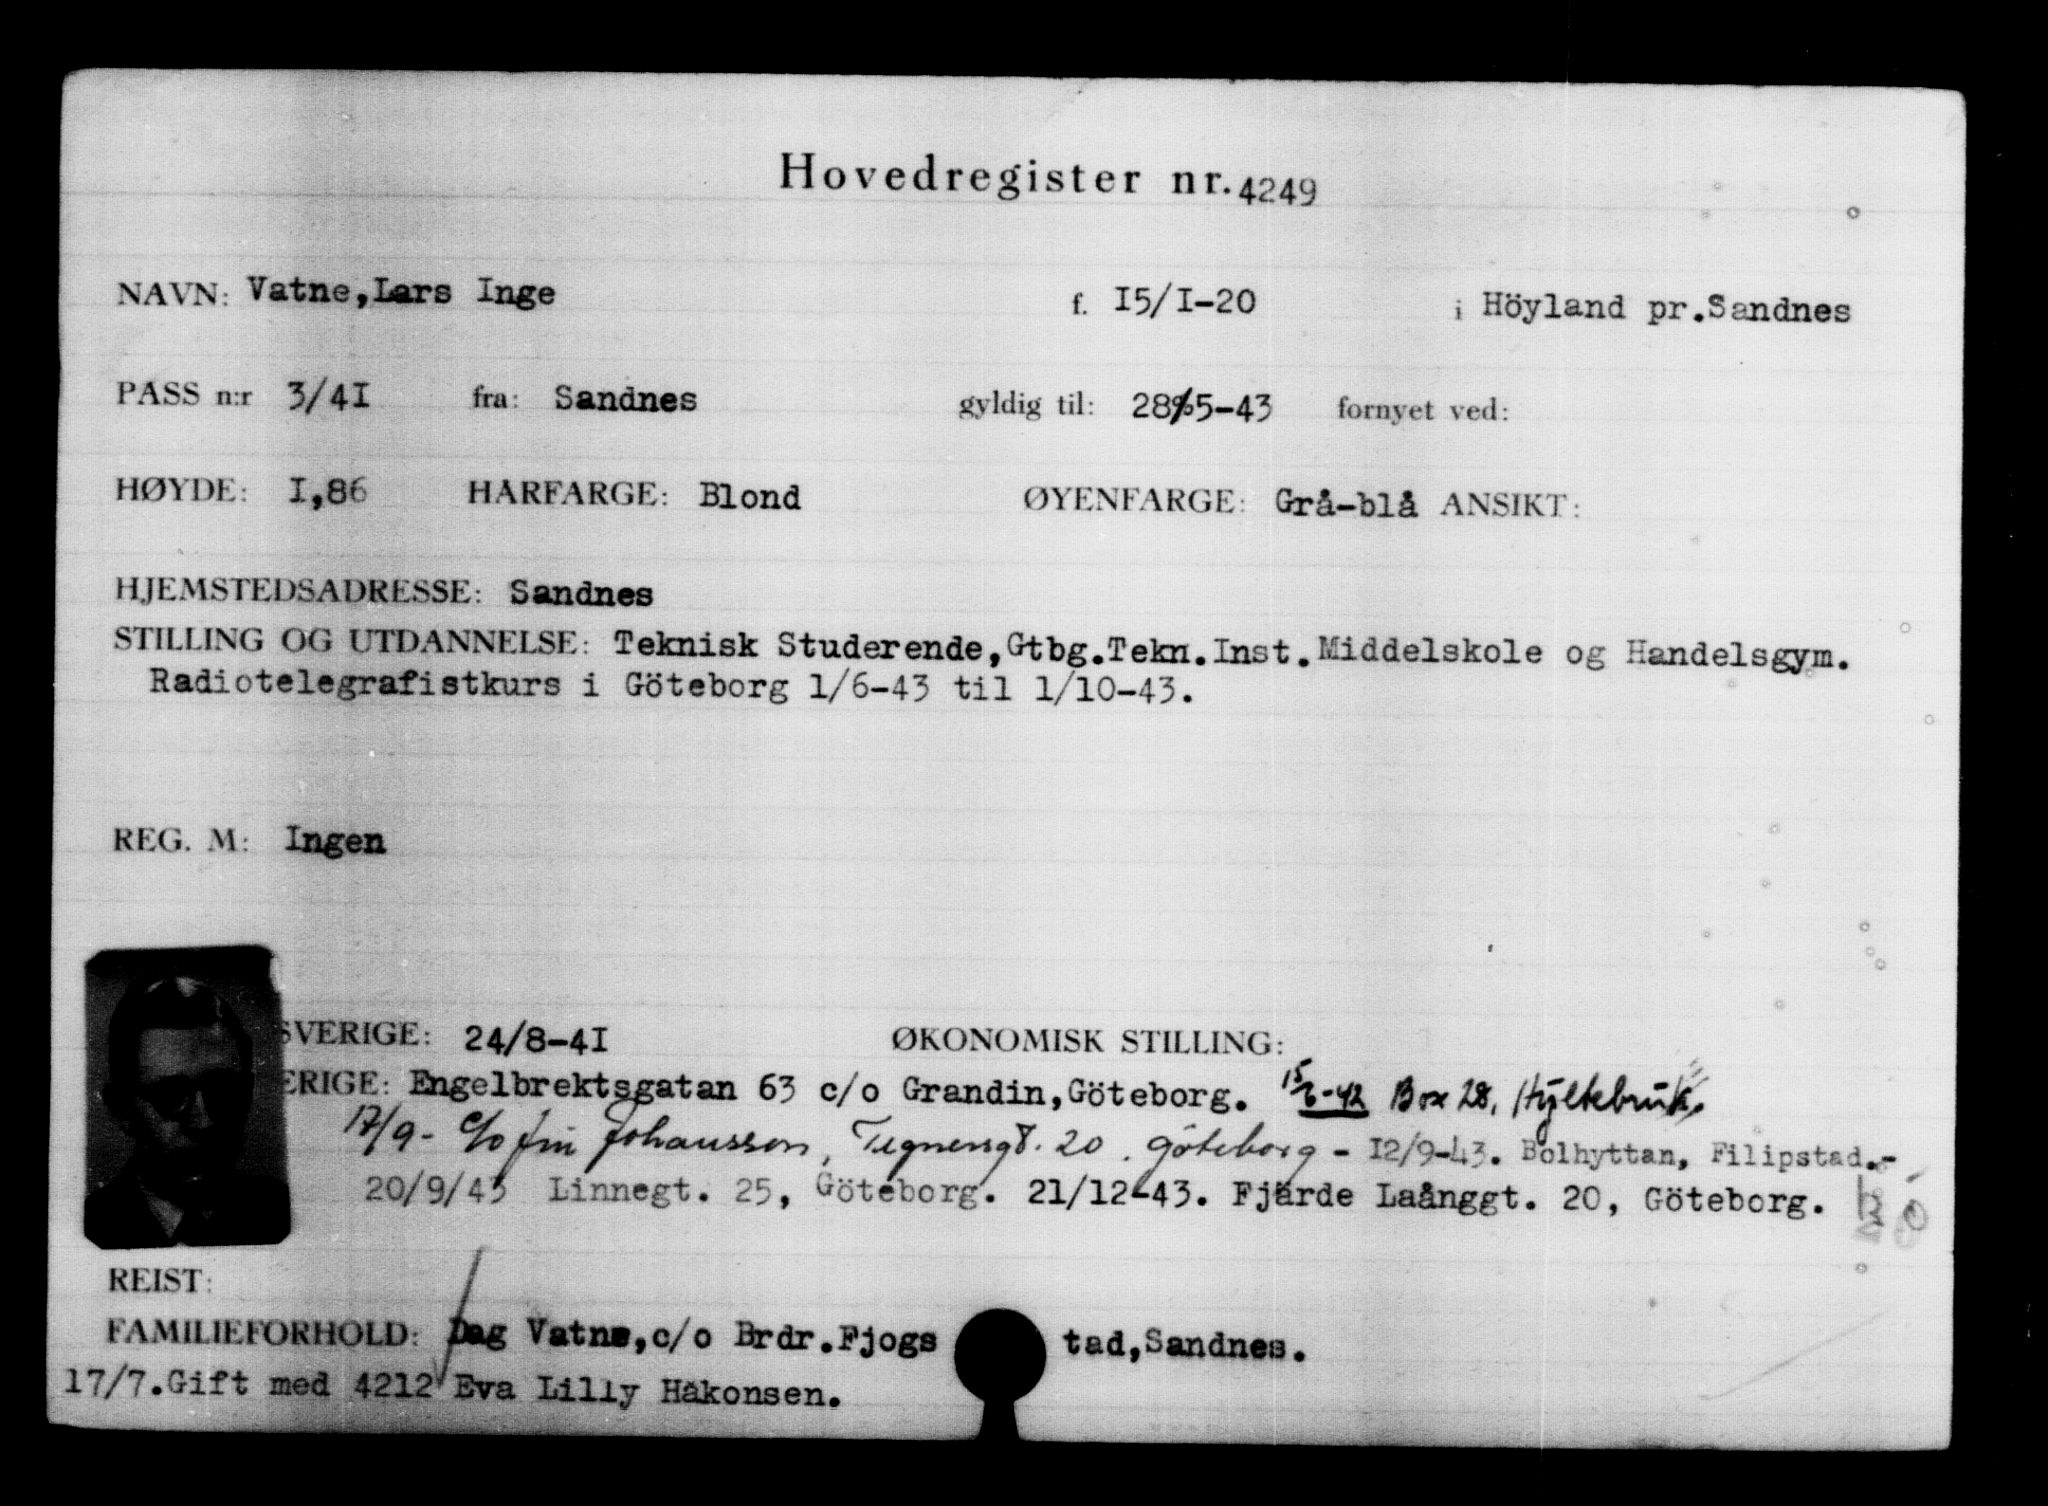 Hovedregister nr. 4249
NAVN: Vatne,Lars Inge f. I5/I-20 i Höyland pr.Sandnes
PASS n:r 3/4I fra: Sandnes gyldig til: 28/5-43 fornyet ved:
HØYDE: I,86 HÅRFARGE: Blond ØYENFARGE: Grå-blå ANSIKT:
HJEMSTEDSADRESSE: Sandnes
STILLING OG UTDANNELSE: Teknisk Studerende,Gtbg.Tekn.Inst.Middelskole og Handelsgym.
Radiotelegrafistkurs i Göteborg 1/6-43 til 1/10-43.
REG. M: Ingen
SVERIGE: 24/8-4I ØKONOMISK STILLING:
ERIGE: Engelbrektsgatan 63 c/o Grandin,Göteborg. 15/6-42 Box 28, Hyltebruk.
17/9- c/o Johansson, Tegnersgt. 20. Göteborg - I2/9-43. Bolhyttan, Filipstad.-
20/9/43 Linnegt. 25, Göteborg. 21/12-43. Fjärde Laånggt. 20, Göteborg.
REIST:
FAMILIEFORHOLD: Dag Vatne,c/o Brdr.Fjogs tad,Sandnes.
17/7.Gift med 4212 Eva Lilly Håkonsen.